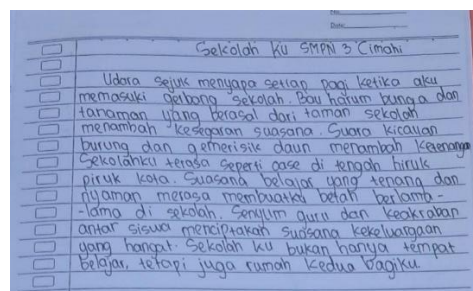 No:
Date:
Sekolah ku SMPN 3 Cimahi
Udara sejuk menyapa setiap pagi ketika aku
memasuki gerbang sekolah. Bau harum bunga dan
tanaman yang berasal dari taman sekolah
menambah kesegaran suasana. Suara kicauan
burung dan gemerisik daun menambah ketenangan
Sekolahku terasa seperti oase di tengah hiruk
piruk kota. Suasana belajar yang tenang dan
nyaman merasa membuatku betah berlama-
-lama di sekolah. Senyum guru dan keakraban
antar siswa menciptakan suasana kekeluargaan
yang hangat. Sekolah ku bukan hanya tempat
belajar, tetapi juga rumah kedua bagiku.